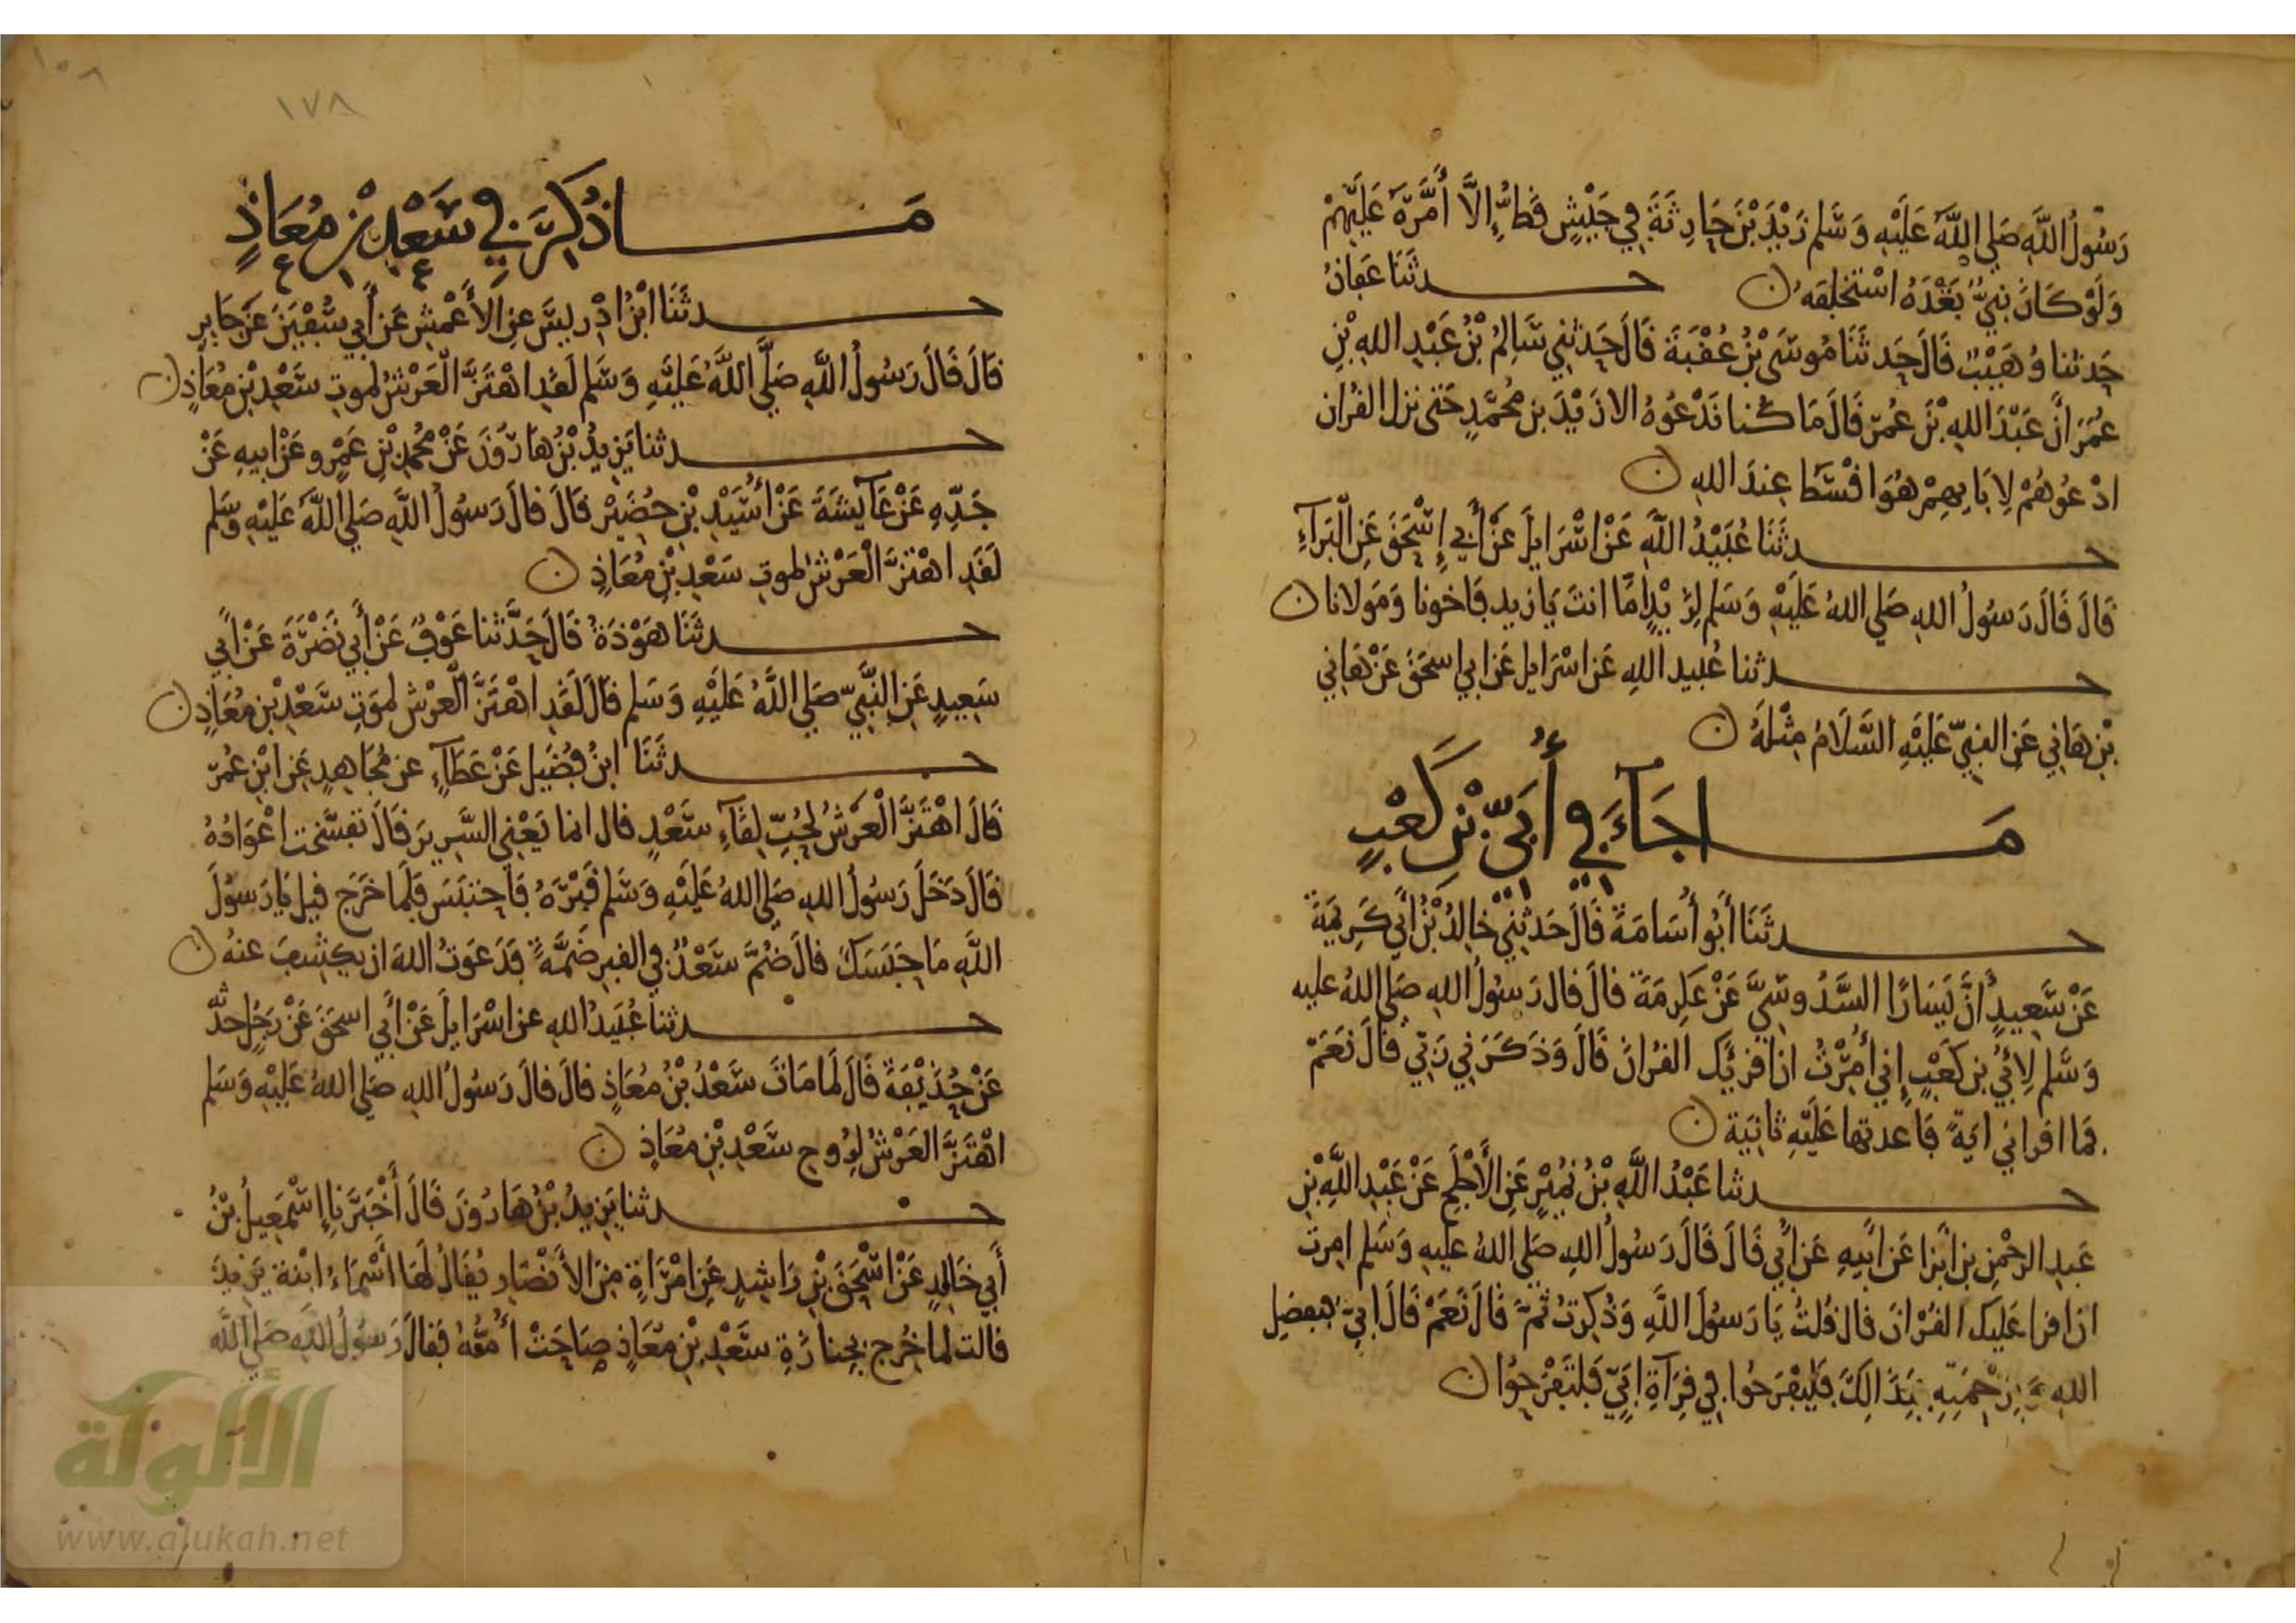 رَسُولُ اللَّهِ صَلَى اللَّهُ عَلَيْهِ وَسَلم زَيْدَ بْنَ حَارِثَةَ فِي جَيْشٍ قَطُّ إِلَّا أَمَّرَهُ عَلَيْهِمْ
وَلَوْ كَانَ بَقِيَ بَعْدَهُ اسْتَخْلَفَهُ ن حدثَنَا عَفانُ
حَدثنا وُهَيْبٌ قَالَ حَدثَنَا مُوسَى بْنُ عُقْبَةَ قَالَ حَدثني سَالِمُ بْنُ عَبْدِ اللهِ بْنِ
عُمَرَ انَّ عَبْدَ اللهِ بْنَ عُمَرَ قَالَ مَا كُنا نَدْعُوهُ الا زَيْدَ بن مُحمَّدٍ حَتى نزل القُرانُ
ادْعُوهُمْ لِابَايِهِمْ هُوَ اقْسَطُ عِندَ اللهِ ن
حدثَنَا عُبَيْدُ اللَّهِ عَنْ اسْرَايلَ عَنْ أَبِي إِسْحَقَ عَنِ الْبَرَآءِ
قَالَ قَالَ رَسُولُ اللهِ صَلى اللهُ عَلَيْهِ وَسَلم لِزَيْدٍ امَّا انتَ يَا زيد فَاخونا وَمَولانا ن
حدثنا عُبيد اللهِ عَن اسْرَايل عَن ابي اسحَقَ عَنْ هَانِي
بْنِ هَانِي عَنِ النبِيِّ عَلَيْهِ السَّلَامُ مِثْلَهُ ن
مَا جَآءَ فِي أُبَيِّ بْنِ كَعْبٍ
حدثَنَا أَبُو أُسَامَةَ قَالَ حَدثنِي خَالِدُ بْنُ أَبِي كَرِيمَةَ
عَنْ سَعِيدٍ انَّ يَسَارًا السَّدُوسِيَّ عَنْ عِكرِمَةَ قالَ قال رَسُولُ اللهِ صَلى اللهُ عليه
وَسَّلم لِأُبَيِّ بن كَعْبٍ إِني أُمِرْتُ ان اقرِئَك القُرانَ قَالَ وَذَكَرَنِي رَبِّي قَالَ نَعَمْ
فما اقراني ايَةً فَاعدتها عَلَيْهِ ثانِيَة ن
حدثنا عَبْدُ اللَّهِ بْنُ نُمَيْرٍ عَنِ الأَجْلَحِ عَنْ عَبْدِ اللَّهِ بْنِ
عَبدِ الرحْمَنِ بن ابْزا عَن ابِيهِ عَن أُبَي قَالَ قَالَ رَسُولُ اللهِ صَلى اللهُ عليه وَسَلم امِرتُ
ان اقرا عَليك القُرْانَ قال قُلتُ يَا رَسُولَ اللَّهِ وَذُكِرتُ ثَمَّ قَالَ نَعَمْ قَالَ ابيٌّ بفضلِ
اللهِ وَبِرَحْمَتِهِ فَبِذَالِكَ فَليَفْرَحُوا فِي قِرَآةِ ابَيٍّ فَلتَفْرَحُوا ن
١٠٨
١٧٨
مَا ذُكِرَ فِي سَعْدِ بْنِ مُعَاذٍ
حدثَنَا ابْنُ ادْرِيسَ عنِ الأَعْمَشِ عَن أَبِي سُفْيَنَ عَن جَابِرٍ
قالَ قَالَ رَسُولُ اللَّهِ صَلَّى اللَّهُ عَلَيْهِ وَسَلم لَقَدِ اهْتَزَّ الْعَرْشُ لموتِ سَعْدِ بْنِ مُعَاذٍ ن
حدثنا يَزِيدُ بْنُ هَارُونَ عَنْ مُحَمدِ بْنِ عَمْرٍو عَنْ ابِيهِ عَنْ
جَدِّهِ عَنْ عَآيشَةَ عَنْ أُسَيْدِ بْنِ حُضَيْرٍ قَالَ قالَ رَسُولُ اللَّهِ صَلى اللَّهُ عَلَيْهِ وَسَلم
لَقَدِ اهْتَزَّ الْعَرْشُ لموتِ سَعْدِ بْنِ مُعَاذٍ ن
حدثَنَا هَوْذَةُ قَالَ حَدَّثنا عَوْفٌ عَنْ أَبِي نَضْرَةَ عَنْ أَبِي
سَعِيدٍ عَنِ النَّبِيِّ صَلى اللَّهُ عَلَيْهِ وَسَلم قَالَ لَقَدِ اهْتَزَّ الْعَرْشُ لِمَوتِ سَعْدِ بْنِ مُعَاذٍ ن
حدثَنَا ابنُ فُضَيلٍ عَنْ عَطَآءٍ عن مُجَاهِدٍ عَنِ ابْنِ عُمَرَ
قَالَ اهْتَزَّ الْعَرْشُ لِحُبِّ لِقَآءِ سَعْدٍ قال انما يَعْنِي السَّرِيرَ قَالَ تفسَّخت اعْوَادُهُ
قَالَ دَخَلَ رَسُولُ اللهِ صَلى اللهُ عَلَيْهِ وَسَلم قَبْرَهُ فَاحتبَسَ فَلَما خَرَجَ قيل يَا رَسُولَ
اللَّهِ مَا حَبَسَكَ قالَ ضُمَّ سَعْدٌ في القبرِ ضَمَّةً فَدَعَوتُ اللهَ ان يكشِفَ عنهُ ن
حدثنا عُبَيدُ اللهِ عن اسْرَايلَ عَنْ أَبِي اسحَقَ عَنْ رَجُلٍ حدثَه
عَنْ حُذَيْفَةَ قَالَ لَمَا مَاتَ سَعْدُ بْنُ مُعَاذٍ قالَ قَالَ رَسُولُ اللهِ صَلى اللهُ عَلَيْهِ وَسَلم
اهْتَزَّ العَرْشُ لِرُوحِ سَعْدِ بْنِ مُعَاذٍ ن
حدثنا يَزِيدُ بْنُ هَارُونَ قَالَ أَخْبَرَنا إِسْمَعِيلُ بْنُ
أَبِي خَالِدٍ عَنْ اسْحَقَ بْنِ رَاشِدٍ عَنِ امْرَاةٍ مِنَ الأَنْصَارِ يُقَالُ لَهَا أَسْمَاءُ ابْنَةُ يَزِيدَ
قالت لما خُرِجَ بِجِنازَةِ سَعْدِ بْنِ مُعَاذٍ صَاحَتْ أُمُّهُ فَقالَ رَسُولُ اللَّهِ صَلى اللَّه
الألوكة
www.alukah.net